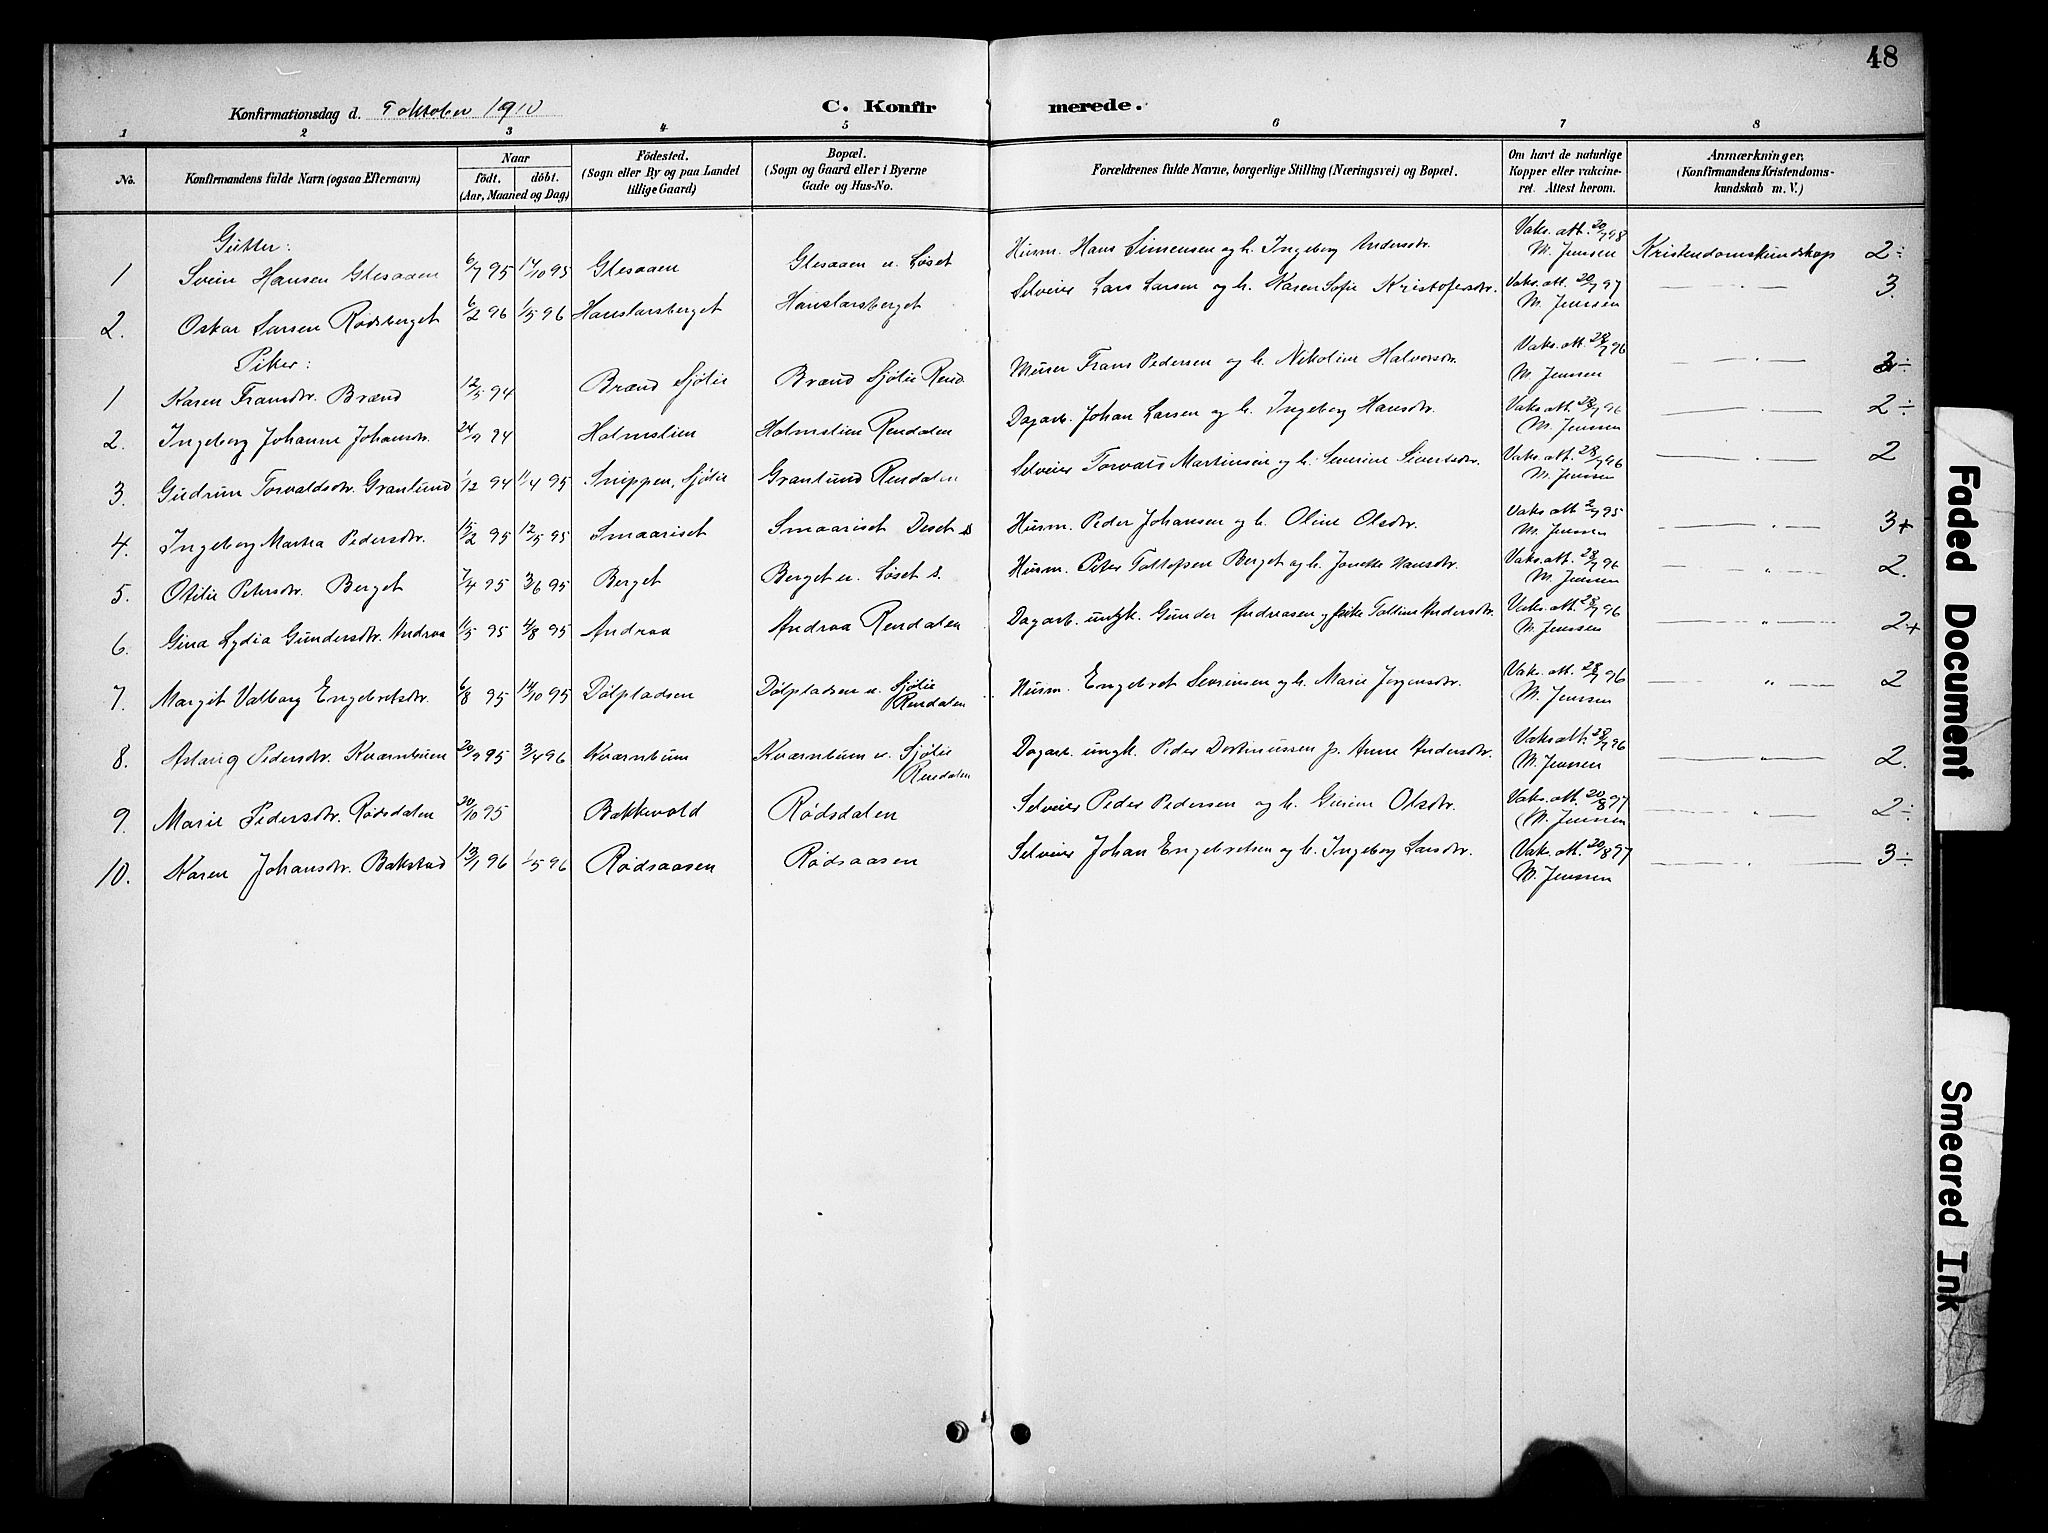 48
Konfirmationsdag d. 9 oktober 1910
C. Konfirmerede.
1 2 3 4 5 6 7 8
No.
Konfirmandens fulde Navn (ogsaa Efternavn)
Naar
født. døbt.
(Aar, Maaned og Dag)
Fødested.
(Sogn eller By og paa Landet
tillige Gaard)
Bopæl.
(Sogn og Gaard eller i Byerne
Gade og Hus-No.
Forældrenes fulde Navne, borgerlige Stilling (Næringsvei) og Bopæl.
Om havt de naturlige
Kopper eller vakcine-
ret. Attest herom.
Anmærkninger.
(Konfirmandens Kristendoms-
kundskab m. V.)
Gutter:
1 Svein Hansen Glesaaen 6/7 95 14/10 95 Glesaaen Glesaaen u. Løset Husm. Hans Simensen og h. Ingeborg Andersdtr. Vaks. att. 20/7 98 M. Jenssen Kristendomskundskap 2÷
2. Oskar Larsen Rødsberget 6/2 96 1/5 96 Hanslarsberget Hanslarsberget Selveier Lars Larsen og h. Karen Sofie Kristofersdtr. Vaks. att. 20/7 97 M. Jenssen — " — 3.
Piker:
1 Karen Fransdtr. Brænd 12/5 94 Brænd Sjølie Brænd Sjølie Rend. Murer Frans Pedersen og h. Nikoline Halvorsdtr. Vaks. att. 28/7 96 M. Jenssen — " — 2÷
2. Ingeborg Johanne Johansdtr. 24/9 94 Holmslien Holmslien Rendalen Dagarb. Johan Larsen og h. Ingeborg Hansdtr. Vaks. att. 28/7 96 M. Jenssen — " — 2÷
3. Gudrun Torvaldsdtr. Granlund 1/12 94 11/4 95 Snippen, Sjølie Granlund Rendalen Selveier Torvald Martinsen og h. Severine Sivertsdtr. Vaks. att. 28/7 96 M. Jenssen — " — 2
4. Ingeborg Marthea Pedersdtr. 15/2 95 12/5 95 Smaariset Smaariset Deset s Husm. Peder Johansen og h. Oline Olsdtr. Vaks. att. 2/7 95 M. Jenssen — " — 3+
5. Otilie Petersdtr. Berget 7/4 95 3/6 95 Berget Berget u. Løset s. Husm. Peter Tollefsen Berget og h. Jonette Hansdtr. Vaks. att. 28/7 96 M. Jenssen — " — 2.
6. Gina Lydia Gundersdtr. Andraa 11/5 95 4/8 95 Andraa Andraa Rendalen Dagarb. ungk. Gunder Andreasen og pikeТалline Andersdtr. Vaks. att. 28/7 96 M. Jenssen — " — 2+
7. Margit Valborg Engebretsdtr. 6/8 95 14/10 95 Dølpladsen Dølpladsen u. Sjølie Rendalen Husm. Engebret Sevrinsen og h. Marie Jørgensdtr. Vaks. att. 28/7 96 M. Jenssen — " — 2
8. Aslaug Pedersdtr. Kværnbuen 20/9 95 3/4 96 Kværnbuen Kværnbuen u. Sjølie Rendalen Dagarb. ungk. Peder Dortinussen p. Anne Andersdtr. Vaks. att. 28/7 96 M. Jenssen — " — 2.
9. Marie Pedersdtr. Rødsdalen 20/10 95 Bakkevold Rødsdalen Selveier Peder Pedersen og h. Gurine Olsdtr. Vaks. att. 20/8 97 M. Jenssen — " — 2÷
10. Karen Johansdtr. Bakstad 13/1 96 1/5 96 Rødsaasen Rødsaasen Selveier Johan Engebretsen og h. Ingeborg Larsdtr. Vaks. att. 20/8 97 M. Jenssen — " — 3÷
Faded Document
Smeared Ink